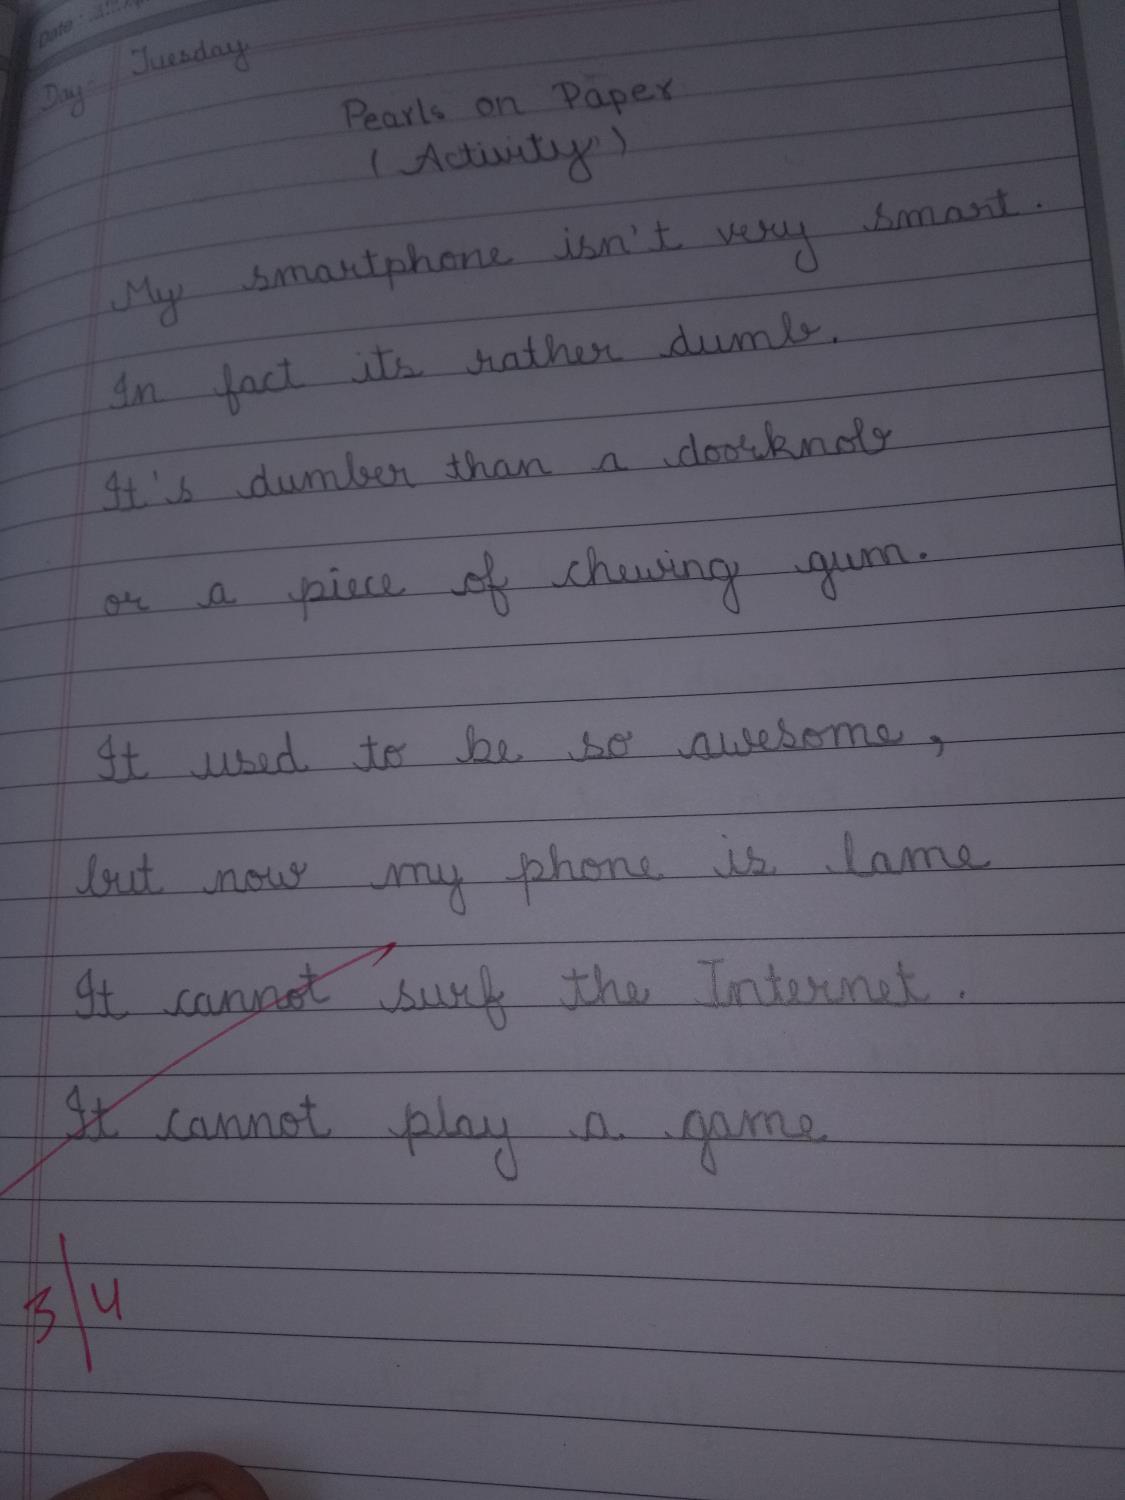 Date :
Day:- Tuesday
Pearls on Paper
(Activity)
My smartphone isn't very smart.
In fact its rather dumb.
It's dumber than a doorknob
or a piece of chewing gum.
It used to be so awesome,
but now my phone is lame
It cannot surf the Internet.
It cannot play a game
3/4